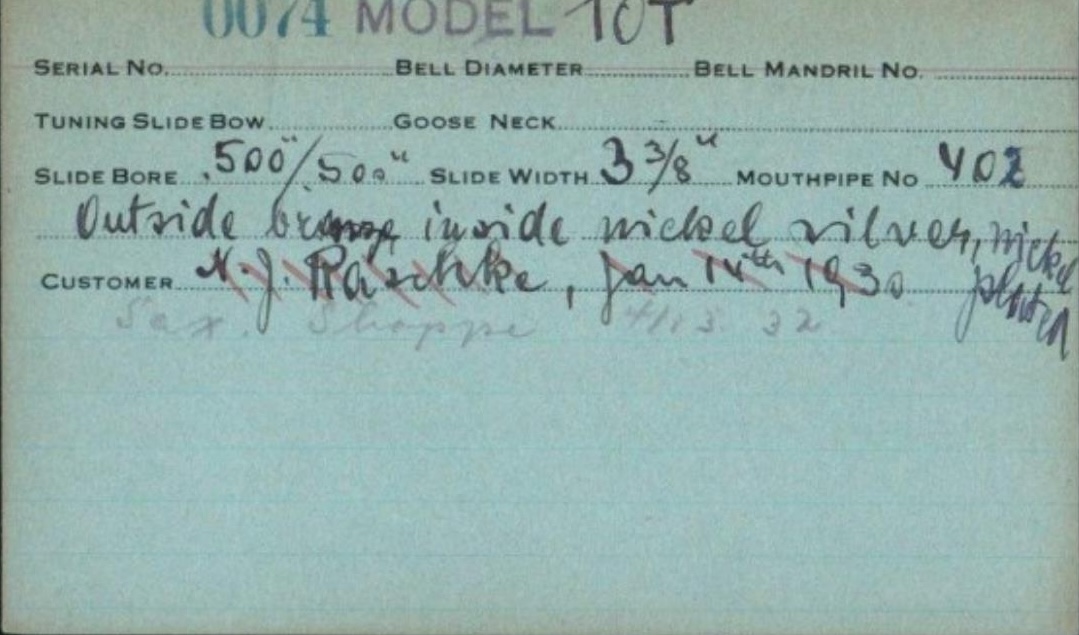 0074 MODEL 10T
SERIAL NO. BELL DIAMETER BELL MANDRIL NO.
TUNING SLIDE BOW GOOSE NECK
SLIDE BORE .500"/.500" SLIDE WIDTH 3 3/8" MOUTHPIPE NO 402
Outside bronze inside nickel silver, nickel
plated
CUSTOMER N. J. Raschke, Jan 14th 1930
Sax. Shoppe 4/13 32